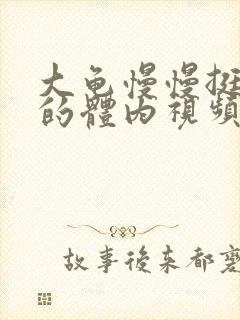 大龟慢慢挺
的體內視頻
故事後来都